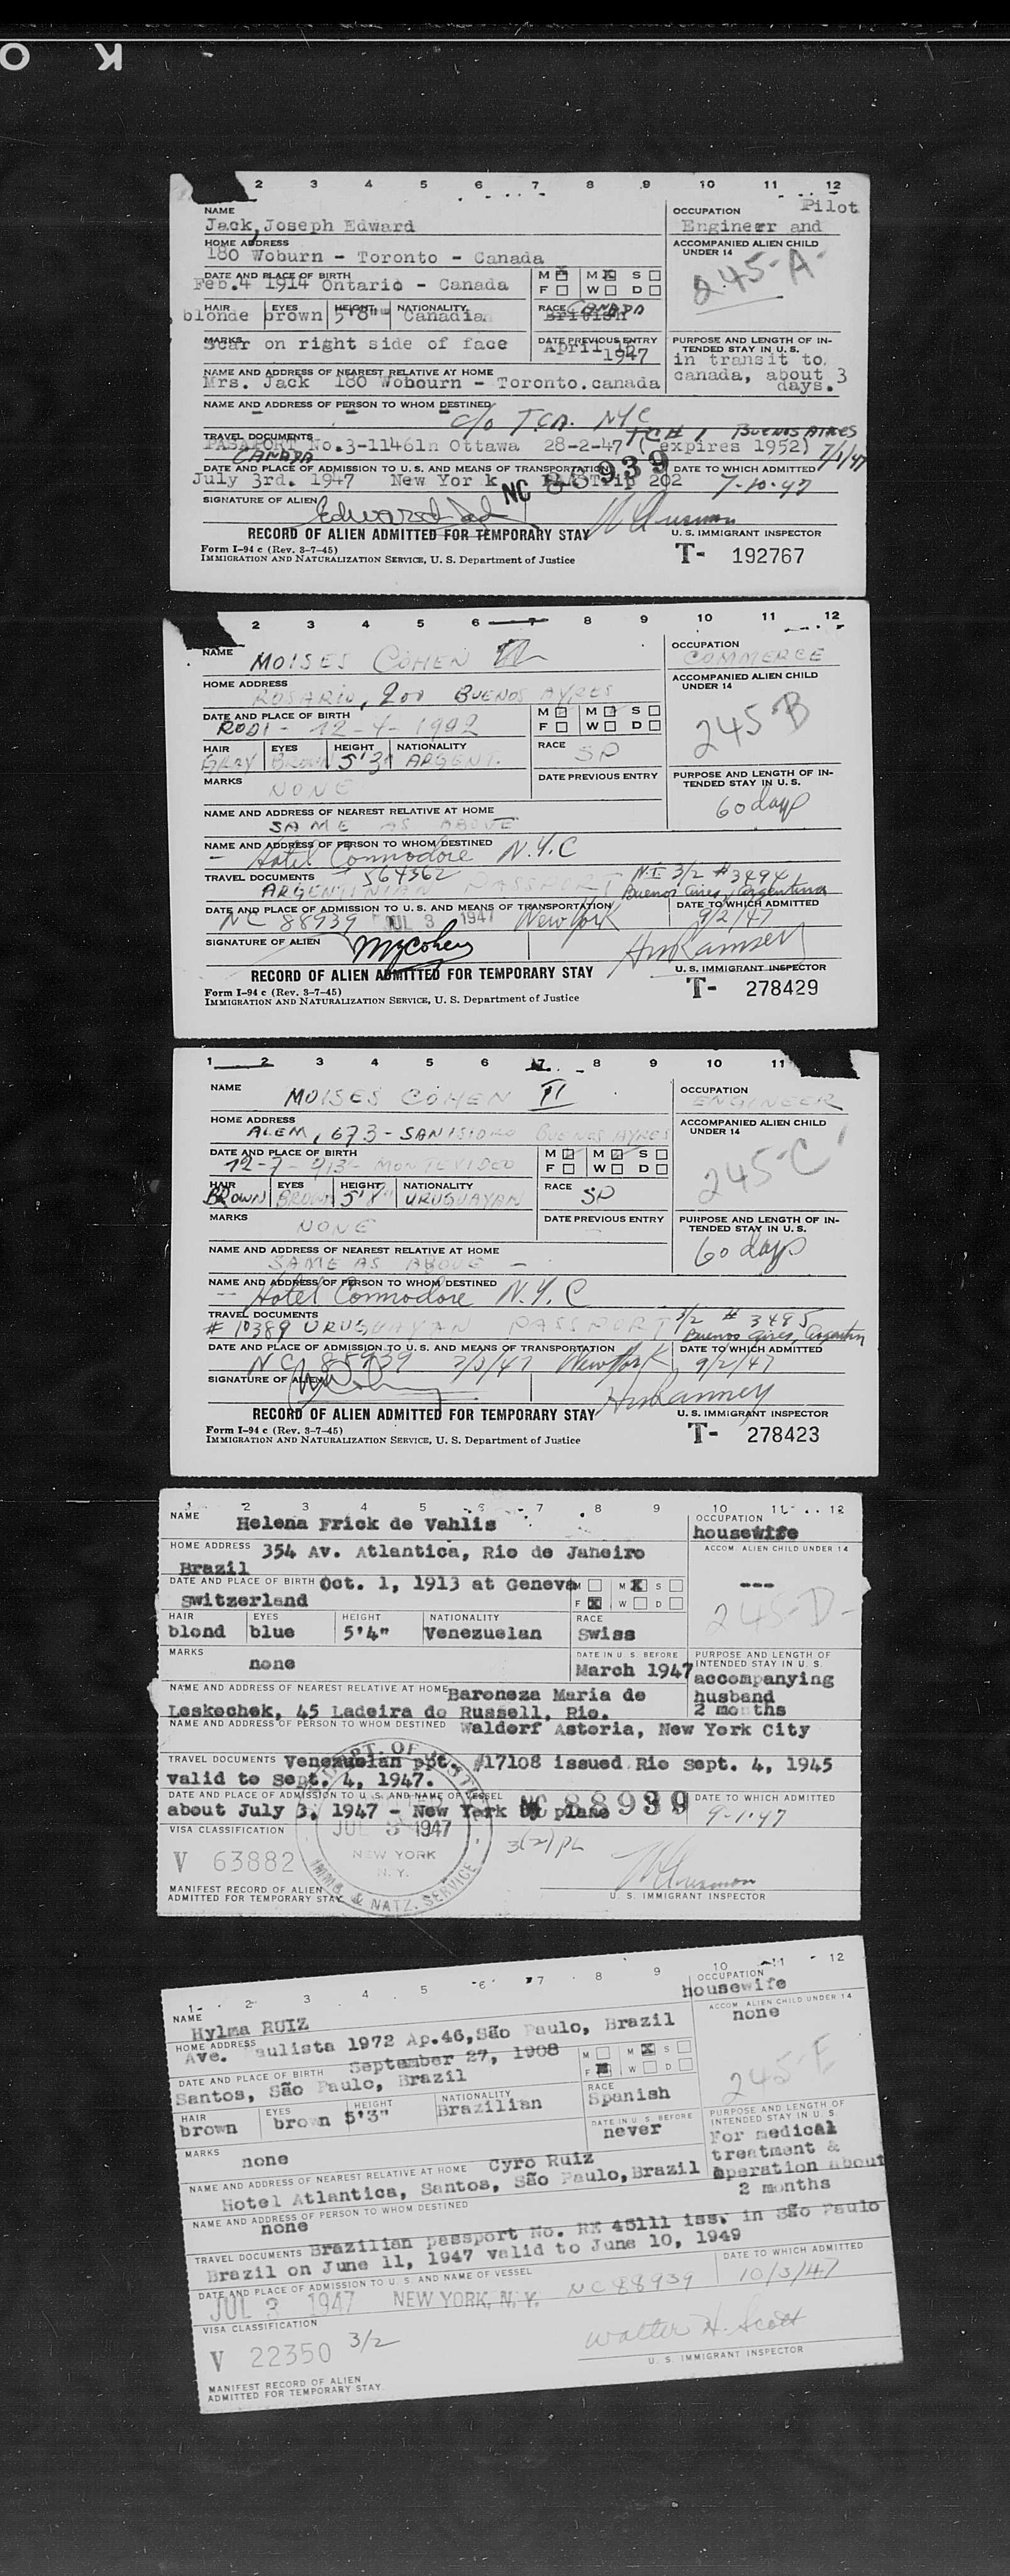 O K
2 3 4 5 6 7 8 9 10 11 12
NAME
Jack, Joseph Edward
OCCUPATION Pilot
Engineer and
HOME ADDRESS
180 Woburn - Toronto - Canada
ACCOMPANIED ALIEN CHILD
UNDER 14
245-A-
DATE AND PLACE OF BIRTH
Feb.4 1914 Ontario - Canada
M M S
F W D
HAIR EYES HEIGHT NATIONALITY RACE CANADA
blonde brown 5'8" Canadian British
MARKS
Scar on right side of face
DATE PREVIOUS ENTRY
April 1947
PURPOSE AND LENGTH OF IN-
TENDED STAY IN U. S.
in transit to
canada, about 3
days.
NAME AND ADDRESS OF NEAREST RELATIVE AT HOME
Mrs. Jack 180 Wobourn - Toronto.canada
NAME AND ADDRESS OF PERSON TO WHOM DESTINED
c/o T.C.A. NYC
TRAVEL DOCUMENTS
BUENOS AIRES
PASAPORT No.3-11461n Ottawa 28-2-47 (expires 1952) 7/1/47
CANADA
DATE AND PLACE OF ADMISSION TO U. S. AND MEANS OF TRANSPORTATION
DATE TO WHICH ADMITTED
July 3rd. 1947 New York Trip 202 7-10-47
NC 88939
SIGNATURE OF ALIEN
RECORD OF ALIEN ADMITTED FOR TEMPORARY STAY
U. S. IMMIGRANT INSPECTOR
Form I-94 c (Rev. 3-7-45)
IMMIGRATION AND NATURALIZATION SERVICE, U. S. Department of Justice
T- 192767
2 3 4 5 6 7 8 9 10 11 12
NAME
MOISES COHEN
OCCUPATION
COMMERCE
HOME ADDRESS
ROSARIO, 200 BUENOS AYRES
ACCOMPANIED ALIEN CHILD
UNDER 14
245-B
DATE AND PLACE OF BIRTH
RODI - 12-4-1992
M M S
F W D
HAIR EYES HEIGHT NATIONALITY RACE
GRAY BROWN 5'3" ARGENT. SP
MARKS
NONE
DATE PREVIOUS ENTRY
PURPOSE AND LENGTH OF IN-
TENDED STAY IN U. S.
60 days
NAME AND ADDRESS OF NEAREST RELATIVE AT HOME
SAME AS ABOVE
NAME AND ADDRESS OF PERSON TO WHOM DESTINED
- Hotel Commodore N.Y.C
TRAVEL DOCUMENTS
564362 3/2 #3494
ARGENTINIAN PASSPORT Buenos Aires, Argentina
DATE AND PLACE OF ADMISSION TO U. S. AND MEANS OF TRANSPORTATION
DATE TO WHICH ADMITTED
NC 88939 JUL 3 1947 New York 9/2/47
SIGNATURE OF ALIEN
RECORD OF ALIEN ADMITTED FOR TEMPORARY STAY
U. S. IMMIGRANT INSPECTOR
Form I-94 c (Rev. 3-7-45)
IMMIGRATION AND NATURALIZATION SERVICE, U. S. Department of Justice
T- 278429
1 2 3 4 5 6 7 8 9 10 11
NAME
MOISES COHEN II
OCCUPATION
ENGINEER
HOME ADDRESS
ALEM, 673 - SAN ISIDRO BUENOS AYRES
ACCOMPANIED ALIEN CHILD
UNDER 14
245-C
DATE AND PLACE OF BIRTH
12-7-913- MONTEVIDEO
M M S
F W D
HAIR EYES HEIGHT NATIONALITY RACE
BROWN BROWN 5'8" URUGUAYAN SP
MARKS
NONE
DATE PREVIOUS ENTRY
PURPOSE AND LENGTH OF IN-
TENDED STAY IN U. S.
60 days
NAME AND ADDRESS OF NEAREST RELATIVE AT HOME
SAME AS ABOVE -
NAME AND ADDRESS OF PERSON TO WHOM DESTINED
-- Hotel Commodore N.Y.C
TRAVEL DOCUMENTS
3/2 # 3495
# 10389 URUGUAYAN PASSPORT Buenos Aires,
DATE AND PLACE OF ADMISSION TO U. S. AND MEANS OF TRANSPORTATION
DATE TO WHICH ADMITTED
NC 88939 7/3/47 New York 9/2/47
SIGNATURE OF ALIEN
RECORD OF ALIEN ADMITTED FOR TEMPORARY STAY
U. S. IMMIGRANT INSPECTOR
Form I-94 c (Rev. 3-7-45)
IMMIGRATION AND NATURALIZATION SERVICE, U. S. Department of Justice
T- 278423
1 2 3 4 5 6 7 8 9 10 11 12
NAME
Helena Frick de Vahlis
OCCUPATION
housewife
HOME ADDRESS 354 Av. Atlantica, Rio de Janeiro
Brazil
ACCOM. ALIEN CHILD UNDER 14
---
245-D-
DATE AND PLACE OF BIRTH Oct. 1, 1913 at Geneva
Switzerland
M M S
F W D
HAIR EYES HEIGHT NATIONALITY RACE
blond blue 5'4" Venezuelan Swiss
MARKS
none
DATE IN U. S. BEFORE
March 1947
PURPOSE AND LENGTH OF
INTENDED STAY IN U. S.
accompanying
husband
2 months
NAME AND ADDRESS OF NEAREST RELATIVE AT HOME Baroneza Maria de
Leskochek, 45 Ladeira do Russell, Rio.
NAME AND ADDRESS OF PERSON TO WHOM DESTINED Waldorf Astoria, New York City
TRAVEL DOCUMENTS Venezuelan ppt. #17108 issued Rio Sept. 4, 1945
valid to Sept. 4, 1947.
DATE AND PLACE OF ADMISSION TO U. S. AND NAME OF VESSEL
NC 88939
DATE TO WHICH ADMITTED
about July 3, 1947 - New York by plane 9-1-47
JUL 3 1947
NEW YORK
N. Y.
IMMG. & NATZ. SERVICE
VISA CLASSIFICATION
V 63882
3(2) PL
MANIFEST RECORD OF ALIEN
ADMITTED FOR TEMPORARY STAY
U. S. IMMIGRANT INSPECTOR
1 2 3 4 5 6 7 8 9 10 11 12
NAME
Hylma RUIZ
OCCUPATION
housewife
HOME ADDRESS
Ave. Paulista 1972 Ap.46, São Paulo, Brazil
ACCOM. ALIEN CHILD UNDER 14
none
245-E
DATE AND PLACE OF BIRTH September 27, 1908
Santos, São Paulo, Brazil
M M S
F W D
HAIR EYES HEIGHT NATIONALITY RACE
brown brown 5'3" Brazilian Spanish
MARKS
none
DATE IN U. S. BEFORE
never
PURPOSE AND LENGTH OF
INTENDED STAY IN U. S.
For medical
treatment &
operation about
2 months
NAME AND ADDRESS OF NEAREST RELATIVE AT HOME Cyro Ruiz
Hotel Atlantica, Santos, São Paulo, Brazil
NAME AND ADDRESS OF PERSON TO WHOM DESTINED
none
TRAVEL DOCUMENTS Brazilian passport No. RE 45111 iss. in São Paulo
Brazil on June 11, 1947 valid to June 10, 1949
DATE AND PLACE OF ADMISSION TO U. S. AND NAME OF VESSEL
DATE TO WHICH ADMITTED
JUL 3 1947 NEW YORK, N. Y. NC 88939 10/3/47
VISA CLASSIFICATION
V 22350 3/2
Walter H. Scott
U. S. IMMIGRANT INSPECTOR
MANIFEST RECORD OF ALIEN
ADMITTED FOR TEMPORARY STAY.